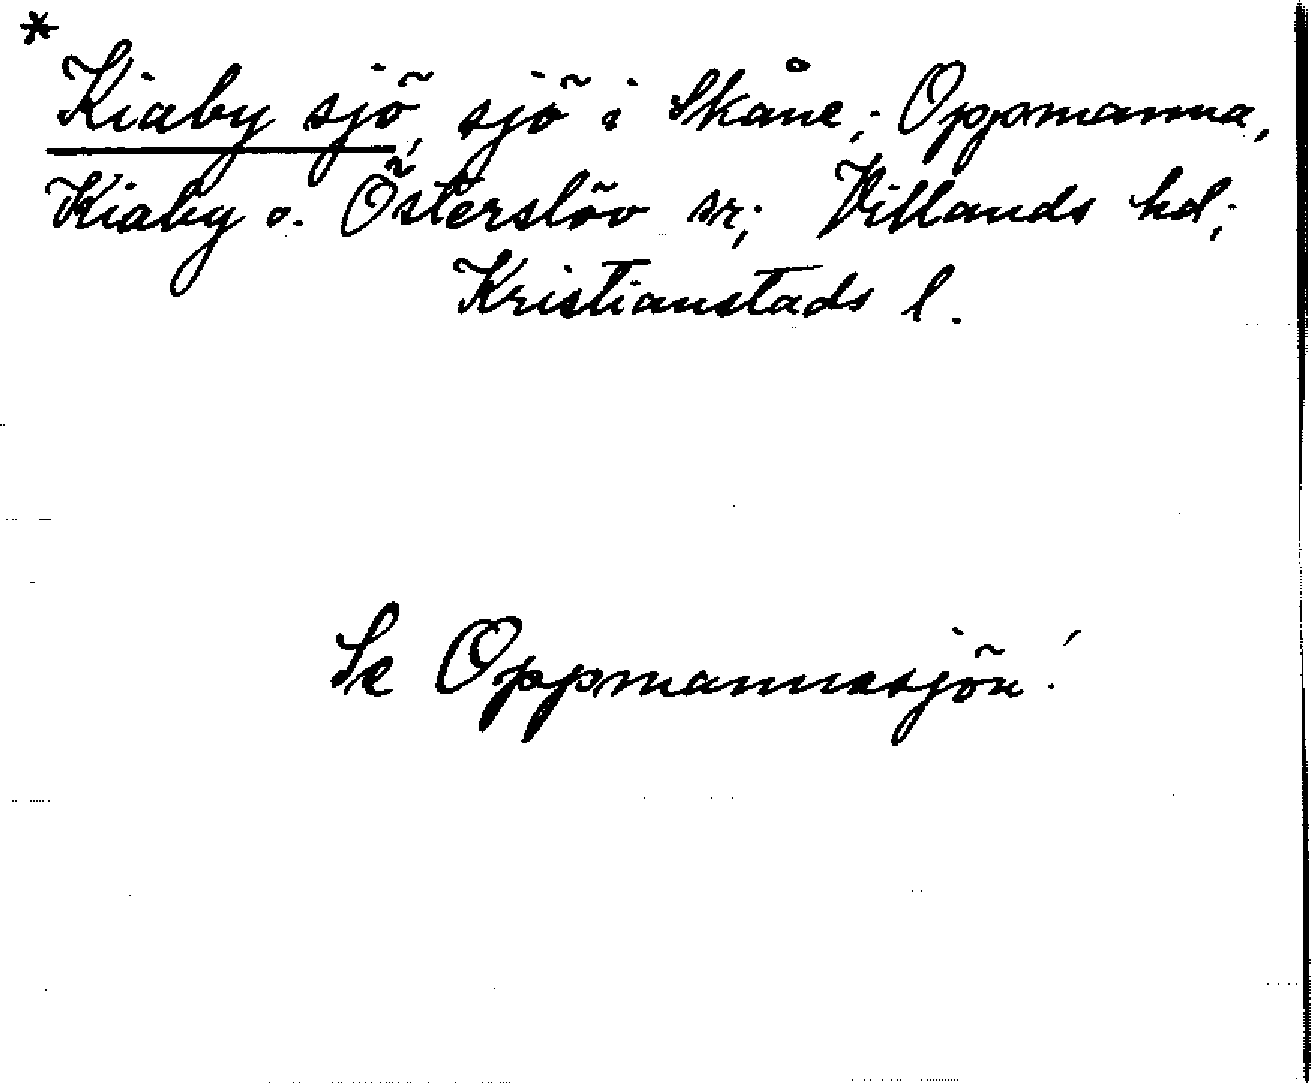 *
Kiaby sjö, sjö i Skåne; Oppmanna,
Kiaby o. Österslöv sr; Villands hd;
Kristianstads l.
Se Oppmannasjön!